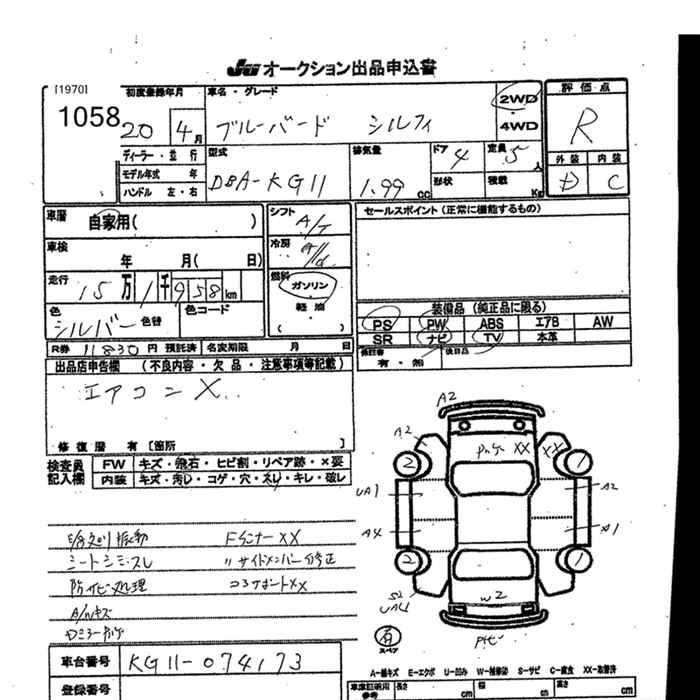 JU オークション出品申込書
[1970]
1058
初度登録年月
20 4月
車名・グレード
ブルーバード シルフィ
2WD
・
4WD
評価点
R
外装 内装
D C
ディーラー・並行
モデル年式 年
ハンドル 左・右
型式
DBA-KG11
排気量
1.99 cc
ドア 4
定員 5 人
形状
積載 Kg
車歴 自家用( )
シフト A/T
セールスポイント (正常に機能するもの)
車検 年 月( 日)
冷房 A/C
走行 15万1千958km
燃料 ガソリン
・
軽油
( )
色 シルバー 色替
色コード
装備品 (純正品に限る)
PS PW ABS エアB AW
SR ナビ TV 本革
R券 11830 円 預託済 名変期限 月 日
保証書 有・無 後日品
出品店申告欄 (不良内容・欠品・注意事項等記載)
エアコン X
修復歴 有 [箇所 ]
検査員記入欄
FW キズ・飛石・ヒビ割・リペア跡・×要
内装 キズ・汚レ・コゲ・穴・スレ・キレ・破レ
振動
シートシミ・スレ
防サビ処理
A/Wキズ
Fインナー XX
〃サイドメンバー修正
コアサポートXX
A2
A2
XX XX
2 1
UA1 A2
A4 A1
2 1
W2
S2
UA1
有
スペア
A-線キズ E-エクボ U-凹み W-補修跡 S-サビ C-腐食 XX-取替済
車台番号 KG11-074173
登録番号
車庫証明用参考 長さ cm 幅 cm 高さ cm